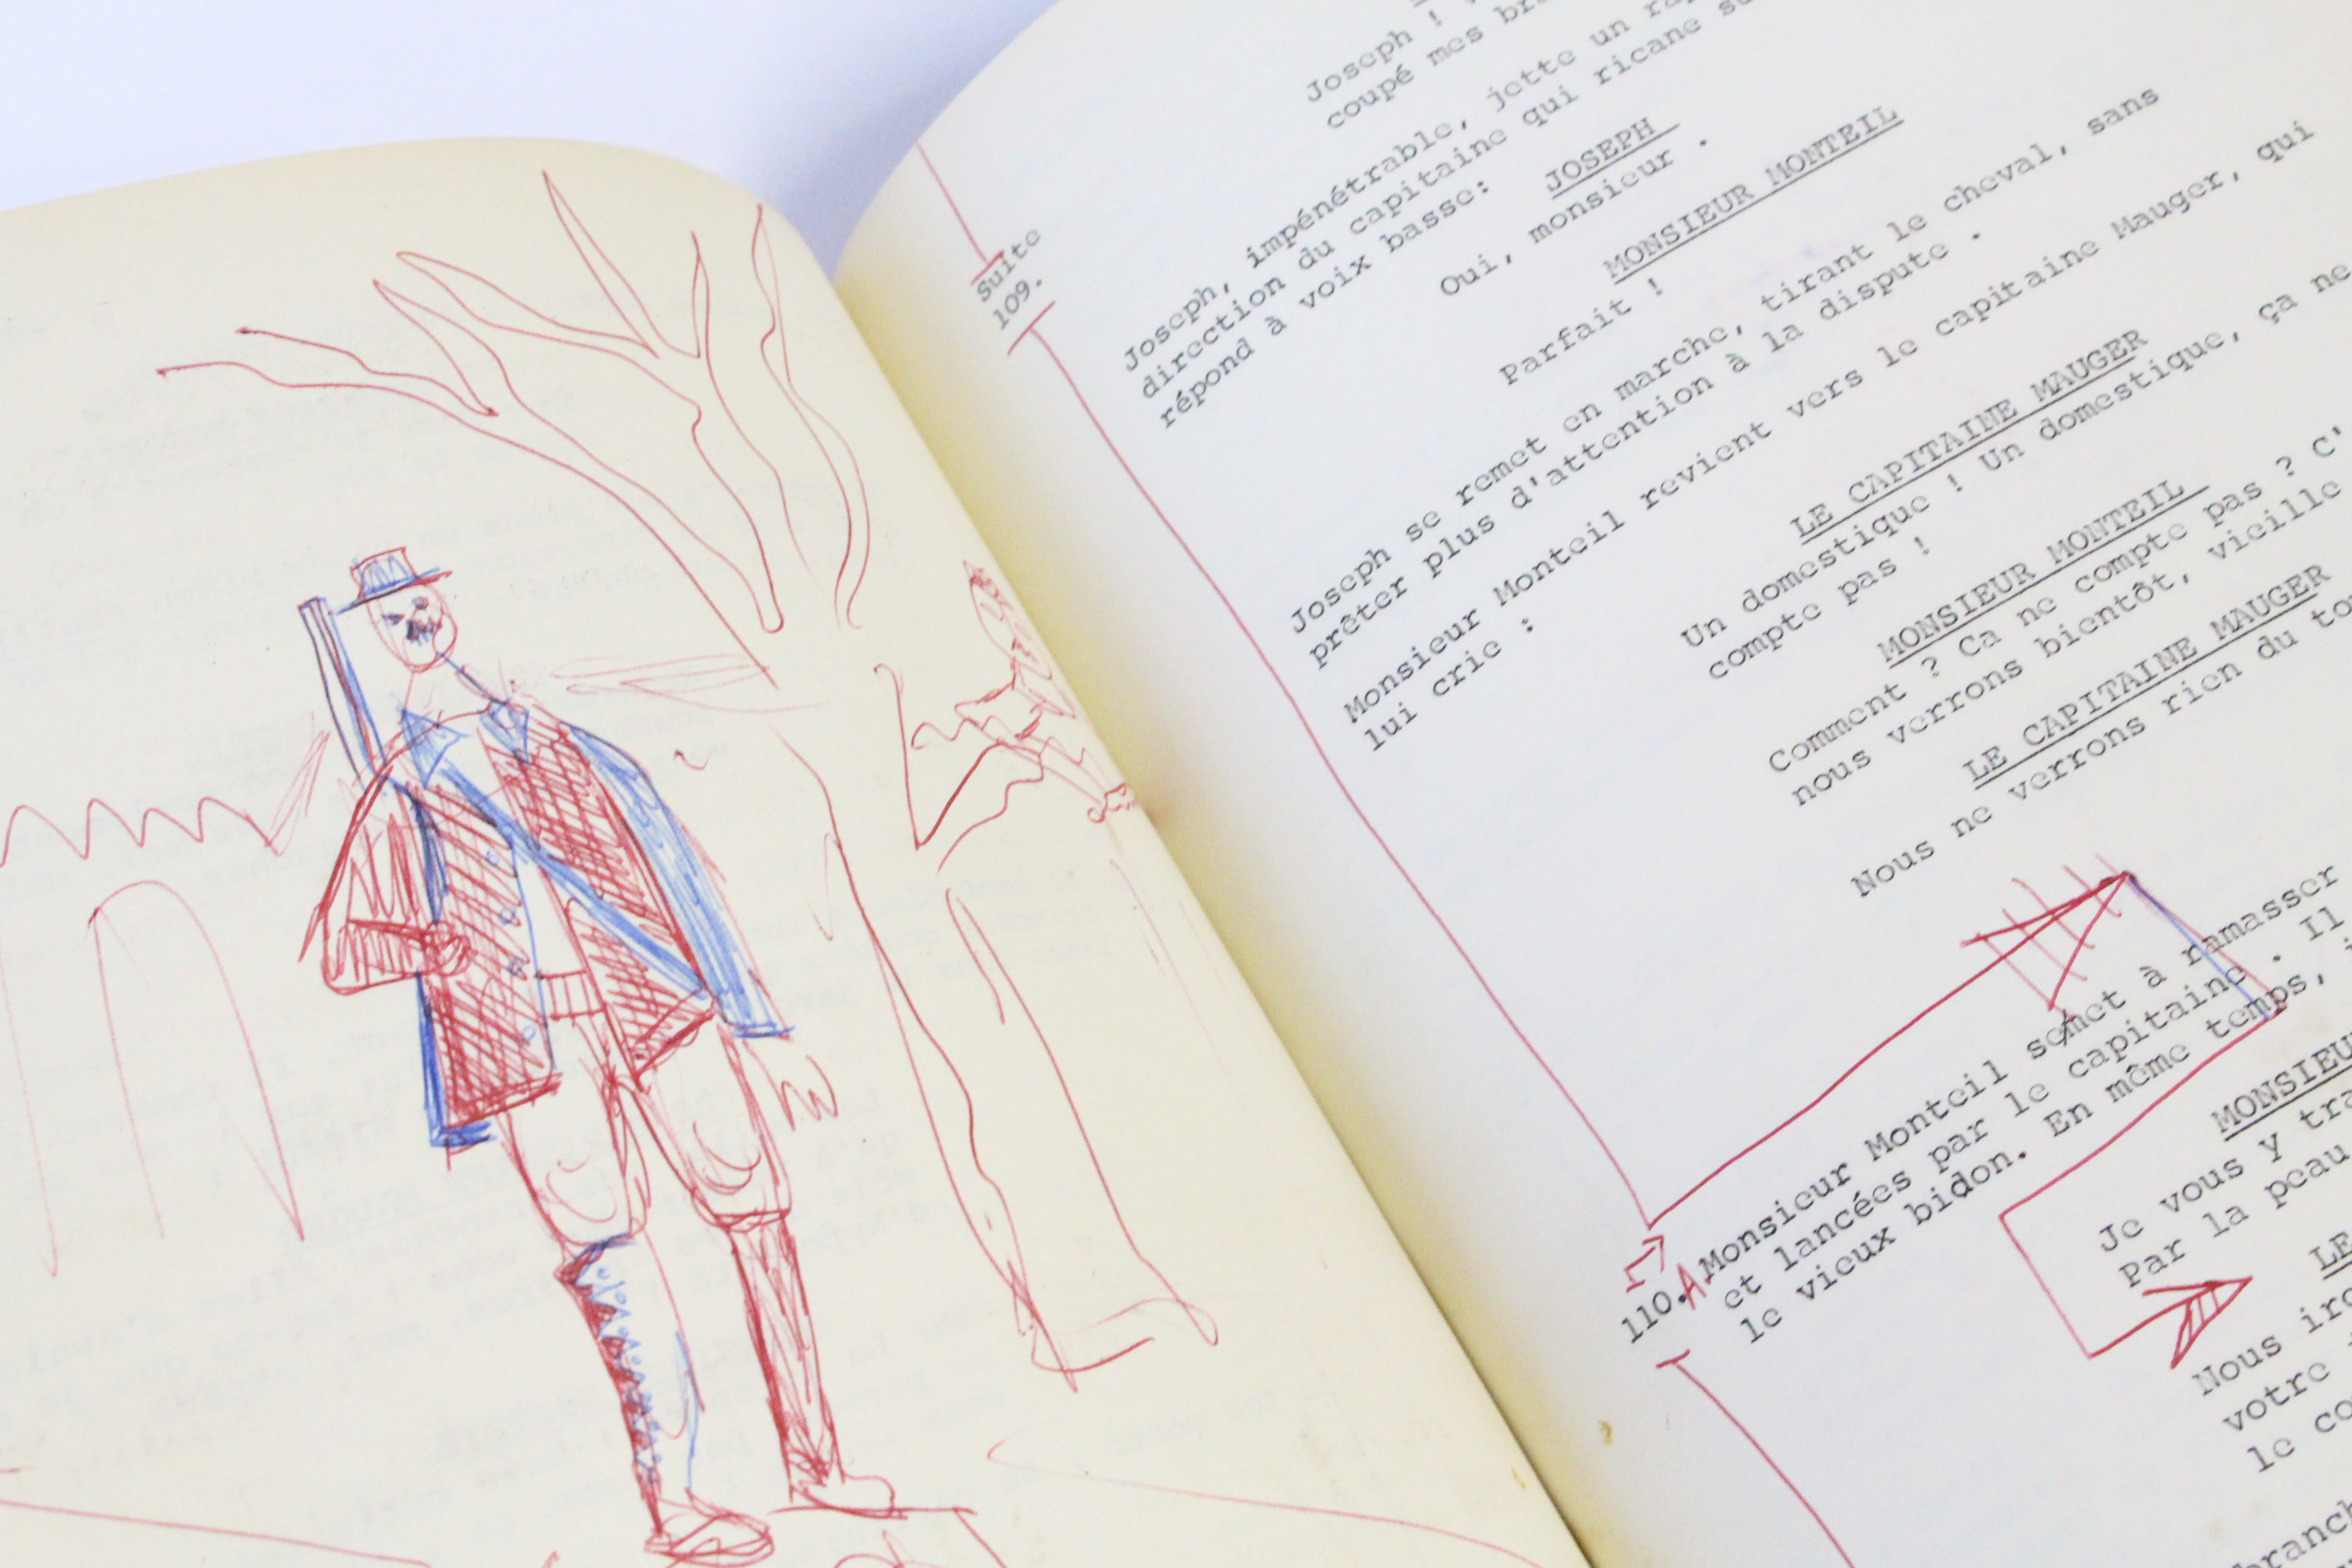 Joseph !
coupé mes
Joseph, impénétrable, jette un
direction du capitaine qui ricane
répond à voix basse:
JOSEPH
Oui, monsieur .
MONSIEUR MONTEIL
Parfait !
Suite
109.
Joseph se remet en marche, tirant le cheval, sans
prêter plus d'attention à la dispute .
Monsieur Monteil revient vers le capitaine Mauger, qui
lui crie :
LE CAPITAINE MAUGER
Un domestique ! Un domestique, ça ne
compte pas !
MONSIEUR MONTEIL
Comment ? Ca ne compte pas ? C'
nous verrons bientôt, vieille
LE CAPITAINE MAUGER
Nous ne verrons rien du
110.A Monsieur Monteil semet à ramasser
et lancées par le capitaine . Il
le vieux bidon. En même temps,
MONSIEUR
Je vous y
Par la peau
LE
Nous
votre
le